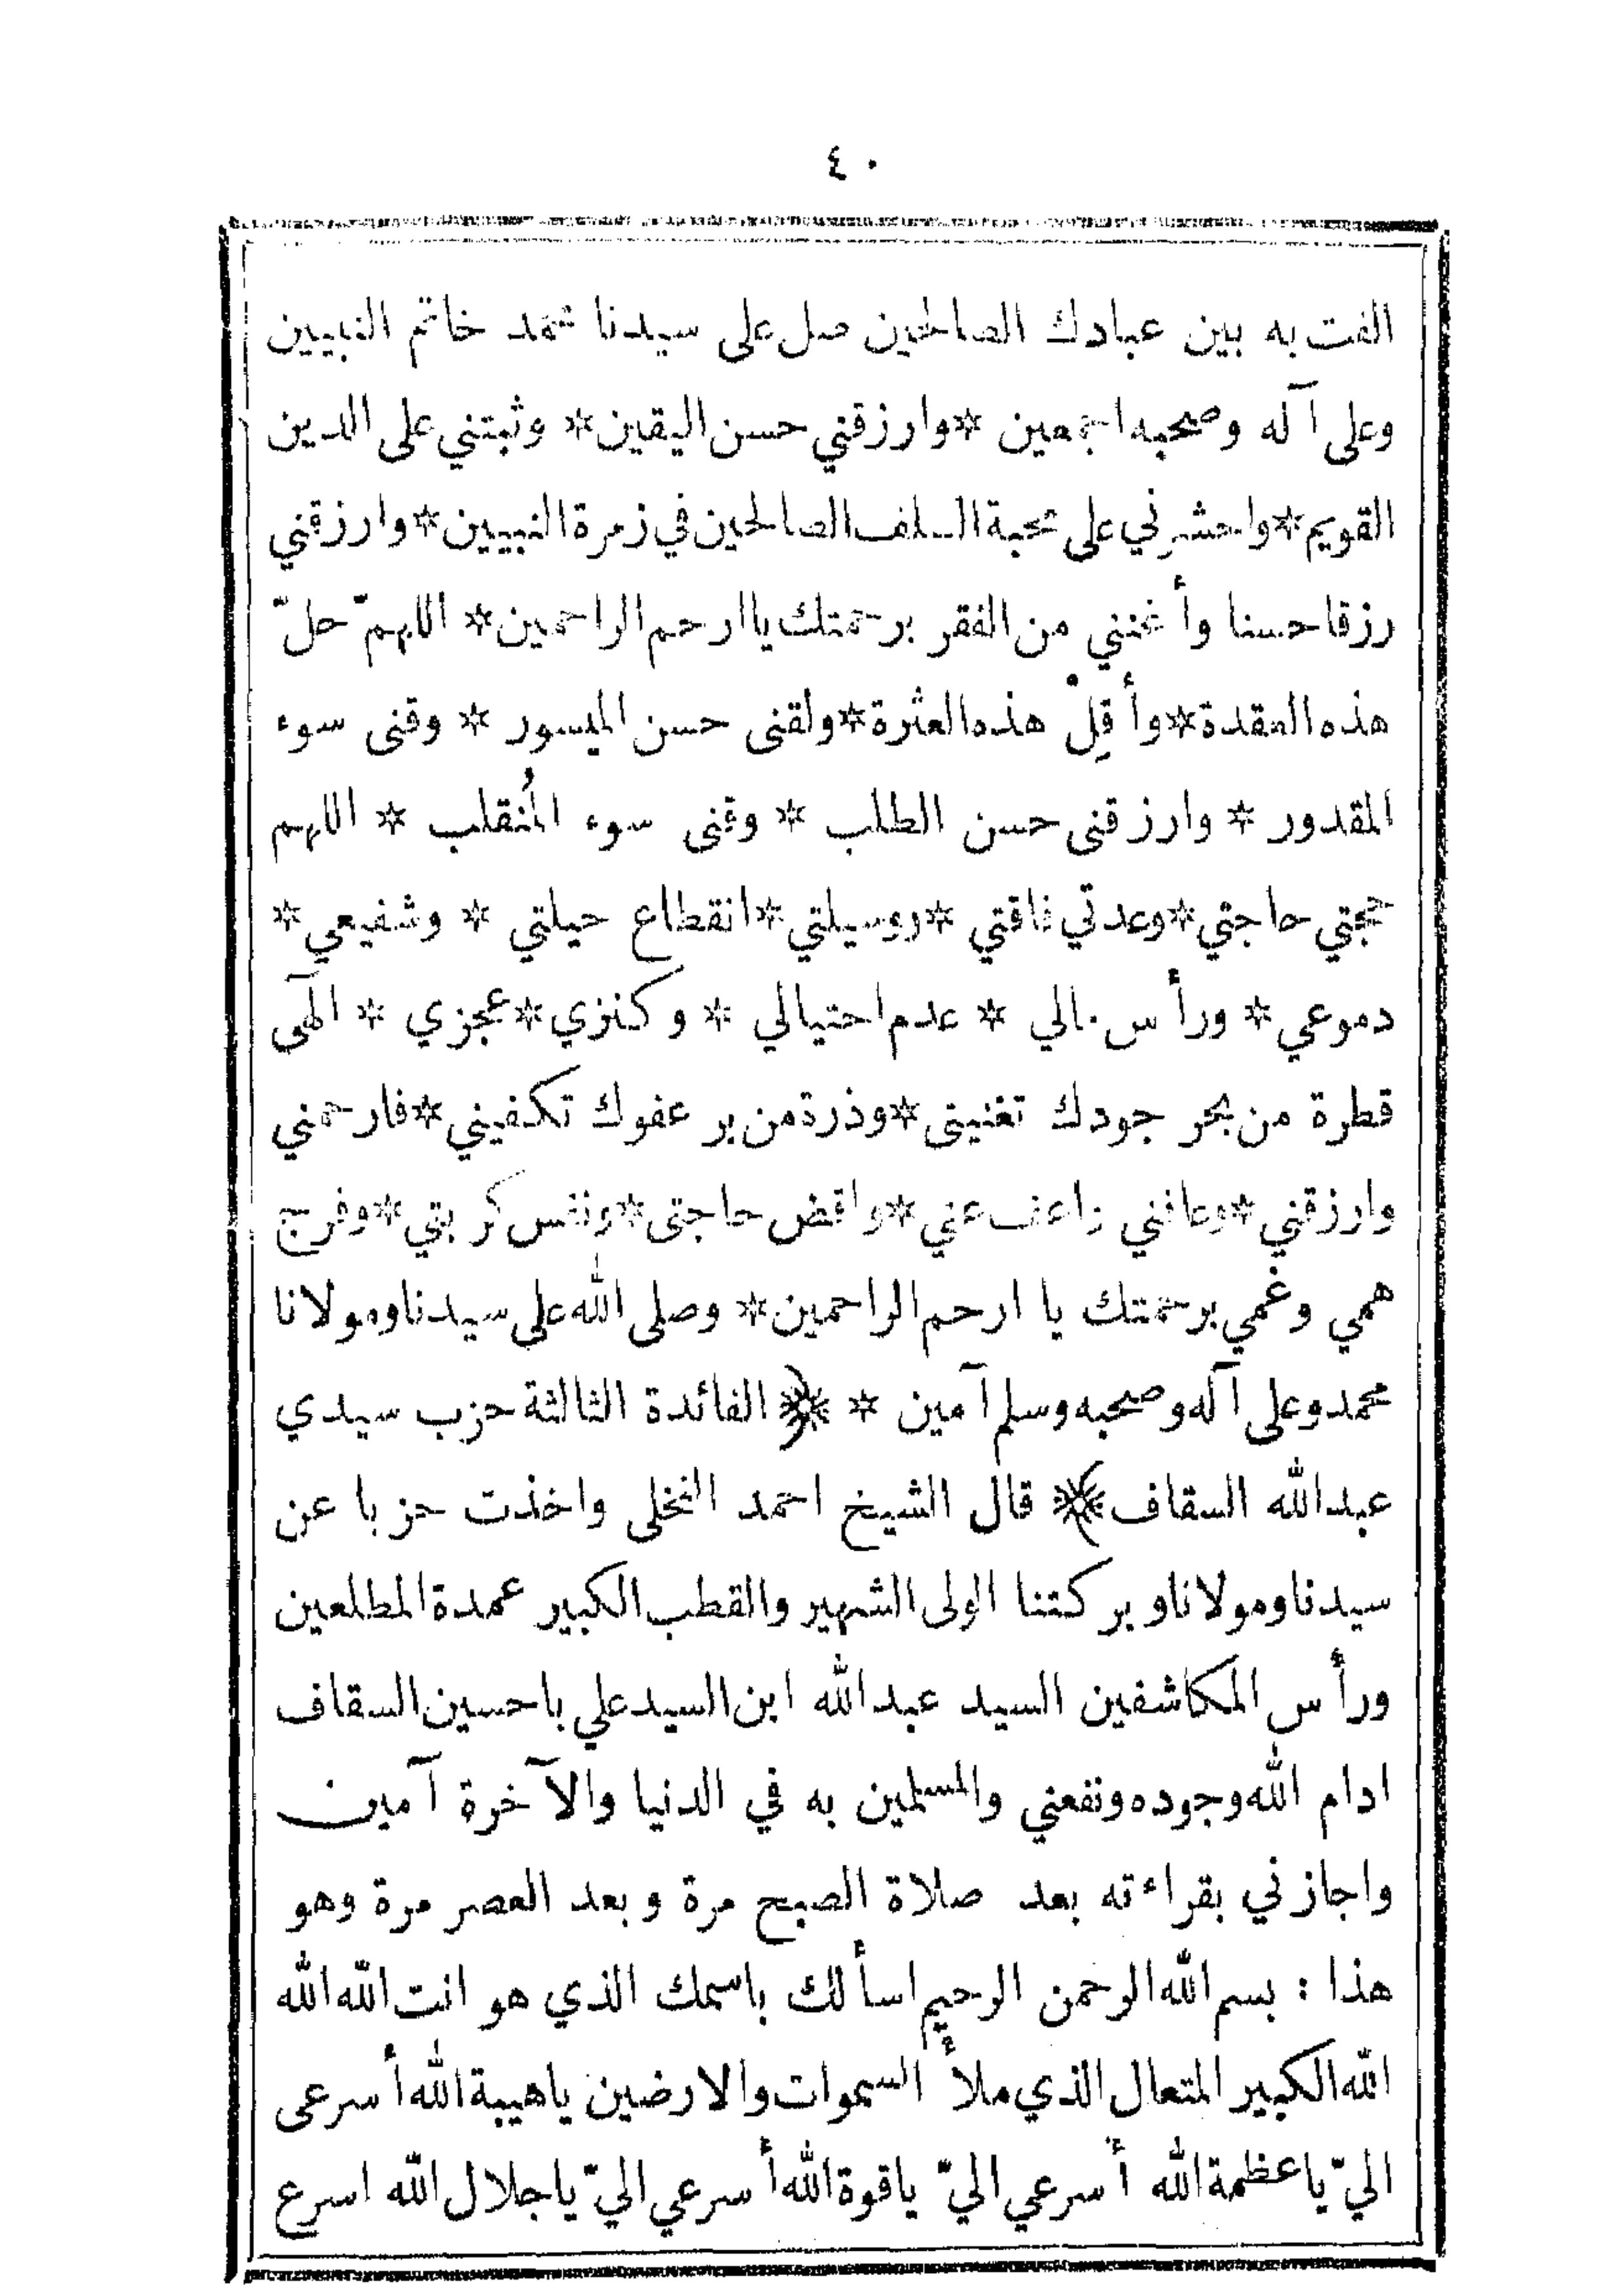 ٤٠
الفت به بين عبادك الصالحين صل على سيدنا محمد خاتم النبيين
وعلى آله وصحبه اجمعين * وارزقني حسن اليقين * وثبتني على الدين
القويم * واحشرني على محبة السلف الصالحين في زمرة النبيين * وارزقني
رزقا حسنا وأغنني من الفقر برحمتك يا ارحم الراحمين * اللهمّ حلّ
هذه العقدة * وأقِلْ هذه العثرة * ولقنى حسن الميسور * وقنى سوء
المقدور * وارزقنى حسن الطلب * وقنى سوء المُنقلب * اللهم
حجتي حاجتي * وعدتي فاقتي * ووسيلتي * انقطاع حيلتي * وشفيعي *
دموعي * ورأس مالي * عدم احتيالي * وكنزي * عجزي * الٓهى
قطرة من بحر جودك تغنينى * وذرة من بر عفوك تكفيني * فارحمني
وارزقني * وعافني واعف عني * واقض حاجتى * ونفس كربتي * وفرج
همي وغمي برحمتك يا ارحم الراحمين * وصلى الله على سيدنا ومولانا
محمد وعلى آله وصحبه وسلم آمين * ﴿ الفائدة الثالثة حزب سيدي
عبدالله السقاف ﴾ قال الشيخ احمد النخلى واخذت حزبا عن
سيدنا ومولانا وبركتنا الولى الشهير والقطب الكبير عمدة المطلعين
ورأس المكاشفين السيد عبدالله ابن السيد علي باحسين السقاف
ادام الله وجوده ونفعني والمسلمين به في الدنيا والآخرة آمين
واجازني بقراءته بعد صلاة الصبح مرة وبعد العصر مرة وهو
هذا : بسم الله الرحمن الرحيم اسألك باسمك الذي هو انت الله الله
الله الكبير المتعال الذي ملأ السموات والارضين ياهيبة الله أسرعى
اليّ ياعظمة الله أسرعي اليّ ياقوة الله أسرعي اليّ ياجلال الله اسرع